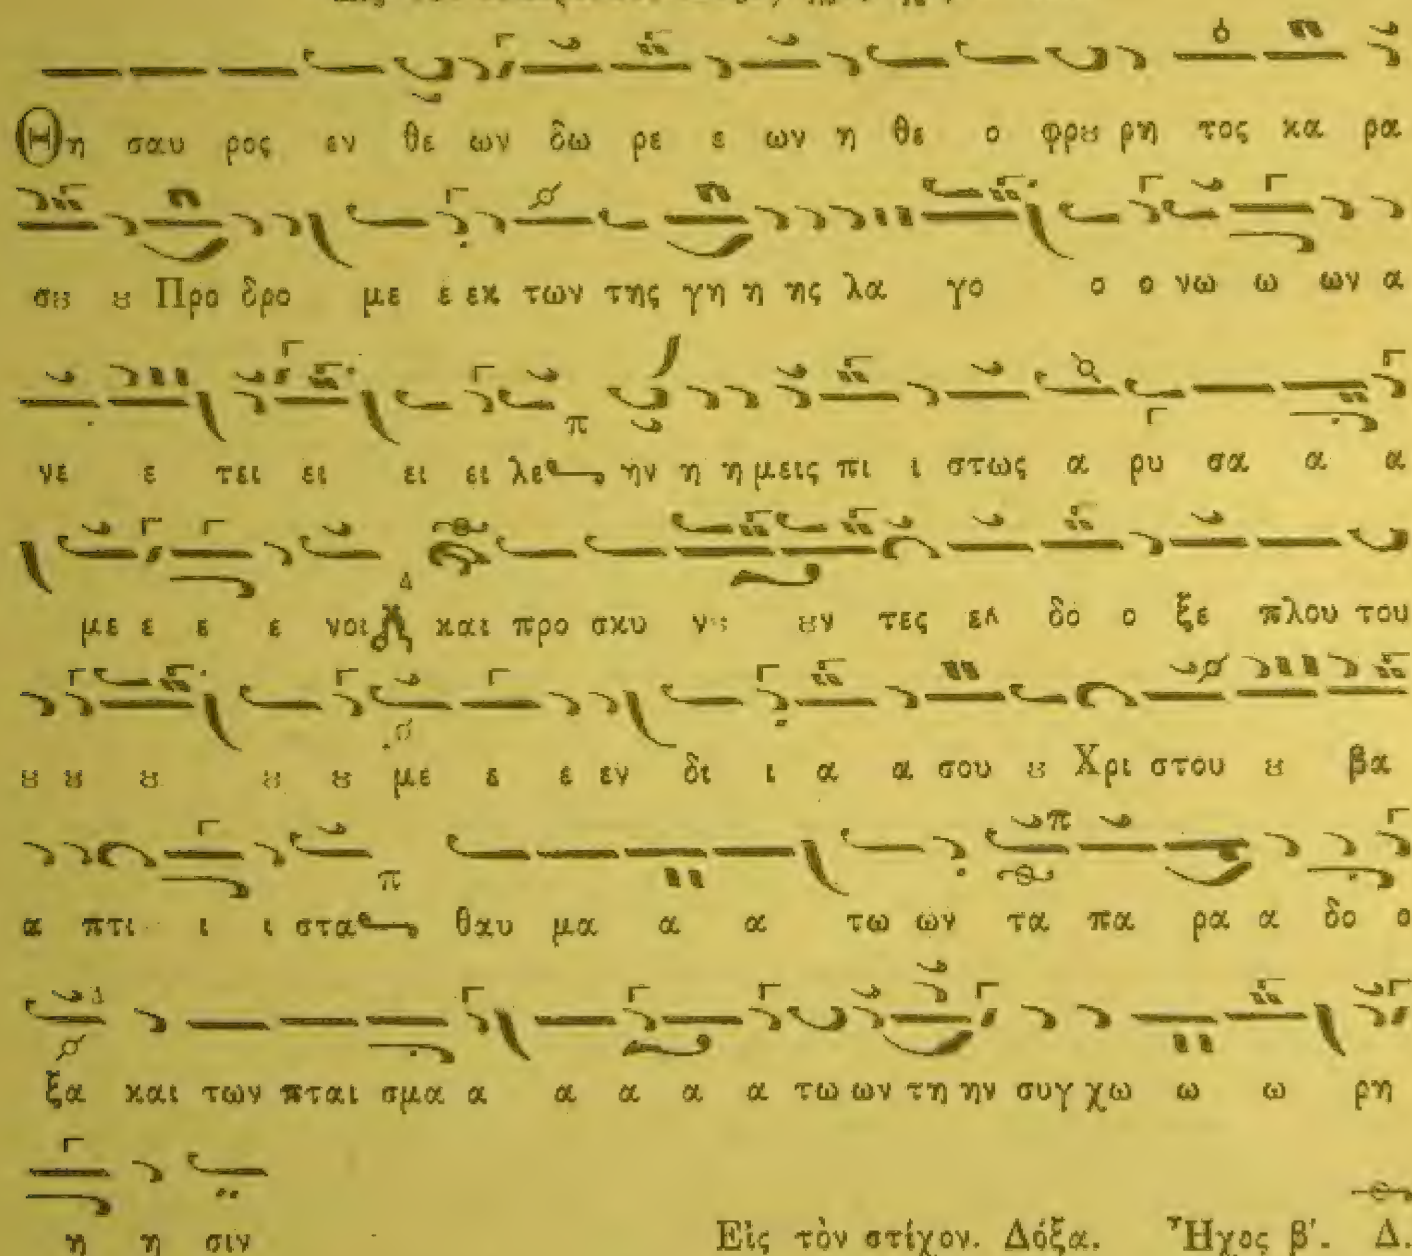 Θη σαυ ρος εν θε ων δω ρε ε ων η θε ο φρȣ ρη τος κα ρα
σȣ ȣ Προ δρο με ε εκ των της γη η ης λα γο ο ο νω ω ων α
νε ε τει ει ει ει λε ην η η μεις πι ι στως α ρυ σα α α
με ε ε ε νοι και προ σκυ νȣ ȣν τες εν δο ο ξε πλου του
ȣ ȣ ȣ ȣ ȣ με ε ε εν δι ι α α σου ȣ Χρι στου ȣ βα
α πτι ι ι στα θαυ μα α α τω ων τα πα ρα α δο ο
ξα και των πται σμα α α α α α τω ων τη ην συγ χω ω ω ρη
η η σιν
Εἰς τὸν στίχον. Δόξα. Ἦχος β΄. Δ.